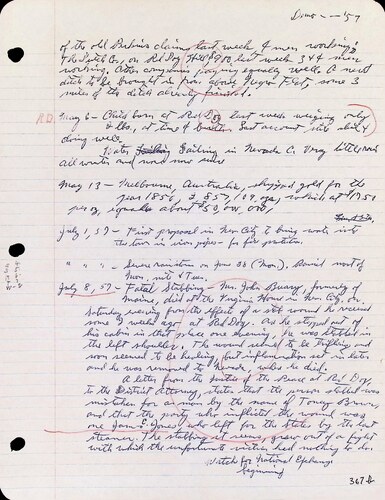 Demo - '57
of the old Perkins claim, last week 4 men working,
on Red Dog Hill $900, last week 3 & 4 men
working. Other companies paying equally well. A new
ditch to be brought in from about Negro Flat, some 3
miles of the ditch already finished.
R.D. May 6 - Child born at Red Dog last week weighing only
2 lbs, at time of last account still alive &
doing well.
Water failing in Nevada C. Very little rain
all winter and
May 13 - Melbourne, Australia, shipped gold for the
year 1856, at $17.50
per oz, equals about $50,000,000,
July 1, 57 - First proposal in Nev City to bring water into
the town in iron pipes - for fire protection.
" " " - Severe rainstorm on June 28 (Mon). Rained most of
Mon. nite & Tues.
July 8, 57 - Fatal Stabbing - Mr. John Bussy, formerly of
Maine, died at the Virginia House in Nev City, on
Saturday evening from the effect of a stab wound he received
some 3 weeks ago at Red Dog. As he stepped out of
his cabin in that place one evening, he was stabbed in
the left shoulder. The wound seemed to be trifling and
soon seemed to be healing, but inflammation set in later
and he was removed to Nevada, where he died.
A letter from the Justice of the Peace at Red Dog,
to the District Attorney, states that the person stabbed was
mistaken for a man by the name of Toney Brown,
and that the party who inflicted the wound was
one James Jones who left for the States by the last
steamer. The stabbing it seems grew out of a fight
with which the unfortunate victim had nothing to do.
Watch for National Exchange
beginning
367 b